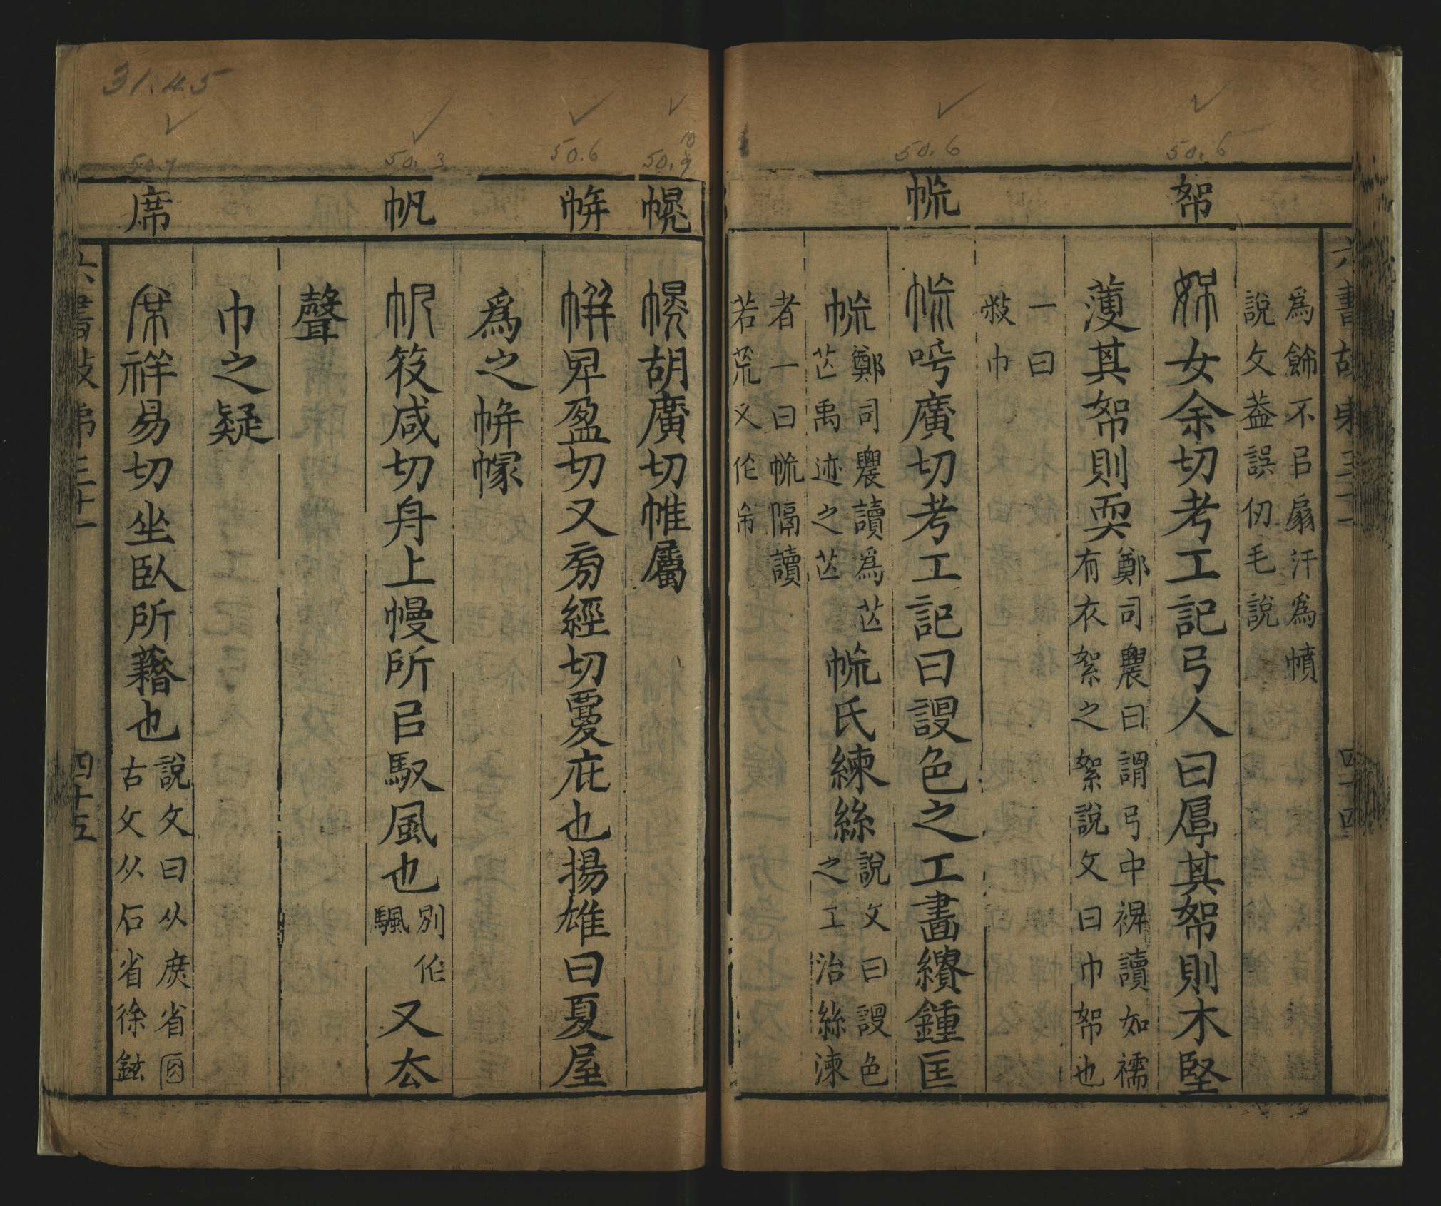 31.45
50.6
50.6
帤
㡆
為飾不㠯扇汗為幩
說文葢誤仞毛說
帤女余切考工記弓人曰厚其帤則木堅
薄其帤則耎鄭司農曰謂弓中裨讀如襦
有衣絮之絮說文曰巾帤也
一曰
敝巾
㡆呼廣切考工記曰設色之工畫繢鍾匡
㡆鄭司農讀為芒
芒禹迹之芒㡆氏湅絲說文曰設色
之工治絲湅
者一曰㡆隔讀
若荒又作㠩
50.6
50.3
50.7
幌
帡
帆
席
幌胡廣切帷屬
帡卑盈切又旁經切覆庇也揚雄曰夏屋
為之帡幏
帆筏咸切舟上幔所㠯馭風也別作
颿又去
聲
巾之疑
席祥易切坐臥所藉也說文曰从庶省
古文从石省徐鉉
四十四
四十五